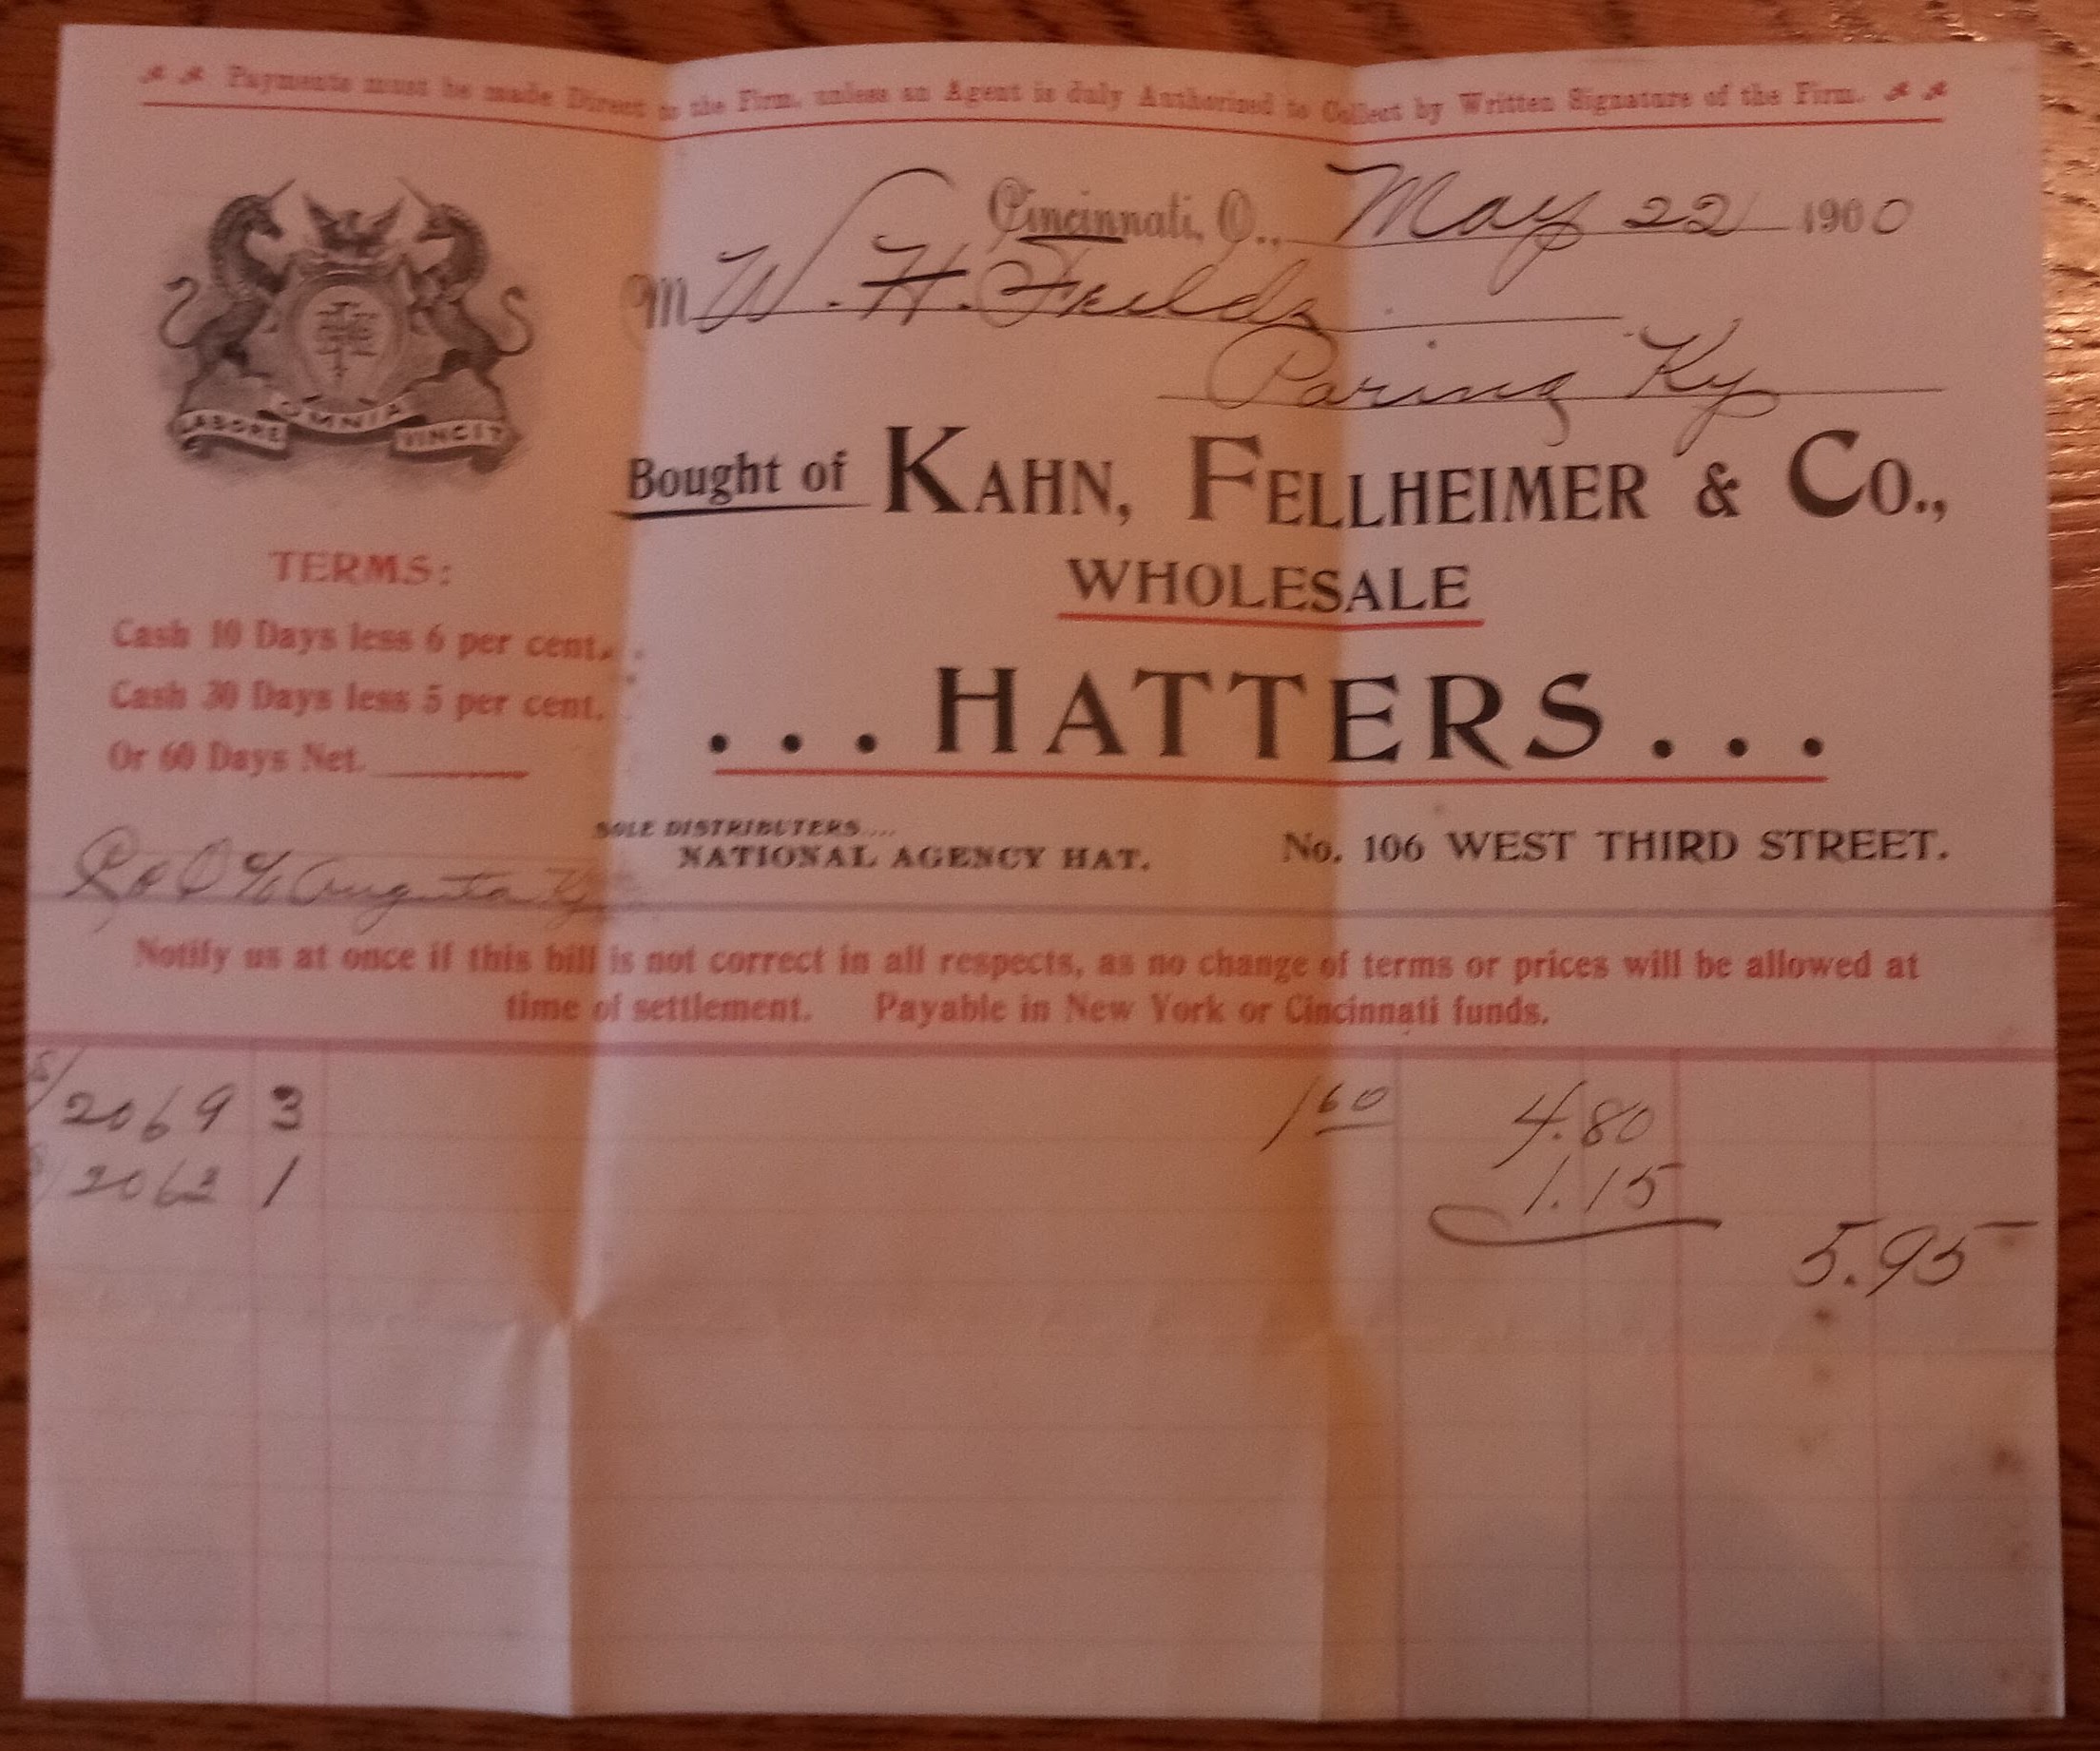 Payments must be made Direct to the Firm, unless an Agent is duly Authorized to Collect by Written Signature of the Firm.
Cincinnati, O., May 22 1900
M W. H. Fields
Paring Ky
LABORE OMNIA VINCIT
Bought of KAHN, FELLHEIMER & CO.,
WHOLESALE
...HATTERS...
TERMS:
Cash 10 Days less 6 per cent.
Cash 30 Days less 5 per cent.
Or 60 Days Net.
SOLE DISTRIBUTERS....
NATIONAL AGENCY HAT.
No. 106 WEST THIRD STREET.
C/O Augusta Ky
Notify us at once if this bill is not correct in all respects, as no change of terms or prices will be allowed at
time of settlement. Payable in New York or Cincinnati funds.
2069 3 1 60 4.80
2063 1 1.15
5.95